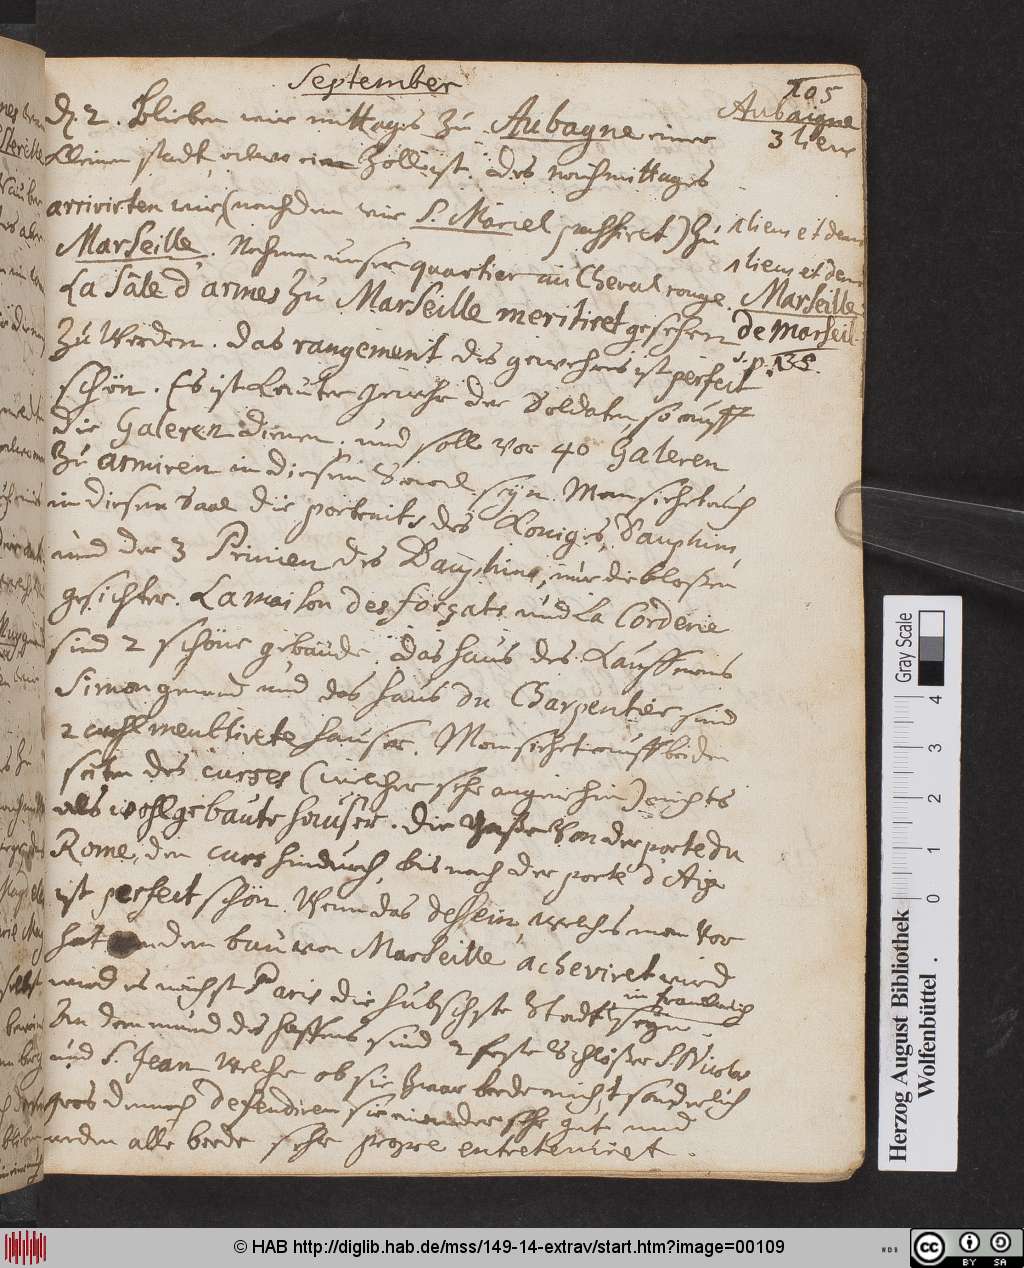 September
105
D. 2. Blieben wir mittages zu Aubagne einer
Aubaigne
3 lieue
kleinen stadt, alwo ein Zoll ist. Des nachmittages
arrivirten wir (nachdem wir S. Marcel passiret) zu
1 lieue et demi
Marseille. Nahmen unser quartier au Cheval rouge.
1 lieue et dem
Marseille
La Sale d'armes zu Marseille meritiret gesehen
de Marseil
v. p. 135.
zu werden. Das rangement des gewehres ist perfect
schön. Es ist lauter gewehr der Soldaten, so auff
die Galeren dienen, und soll vor 40 Galeren
zu armiren in diesem Saal seyn. Man siehet auch
in diesem Saal die portraits des Koniges, Dauphins
und der 3 Prinzen des Dauphins, nur die bloßen
gesichter. La maison des forçats und La Corderie
sind 2 schöne gebäude. Das haus des Kauffmans
Simon genand und das haus du Charpentier sind
2 wohl meublirete hauser. Man siehet auff beiden
seiten des curses (welcher sehr angenehm) nichts
als wohlgebaute hauser. Die straße von der porte du
Rome, den curs hindurch, bis nach der porte d'Aix
ist perfect schön. Wenn das dessein, welches man vor
hat an dem bau von Marseille, acheviret wird
wird es nächst Paris die hubschste Stadt in Franckreich seyn.
An dem mund des haffens sind 2 feste Schloßer S. Nicolas
und S. Jean welche ob sie zwar beede nicht sonderlich
gros dennoch defendiren sie einander sehr gut und
werden alle beede sehr propre entreteniret.
Gray Scale
0 1 2 3 4
Herzog August Bibliothek
Wolfenbüttel
© HAB http://diglib.hab.de/mss/149-14-extrav/start.htm?image=00109
cc BY SA